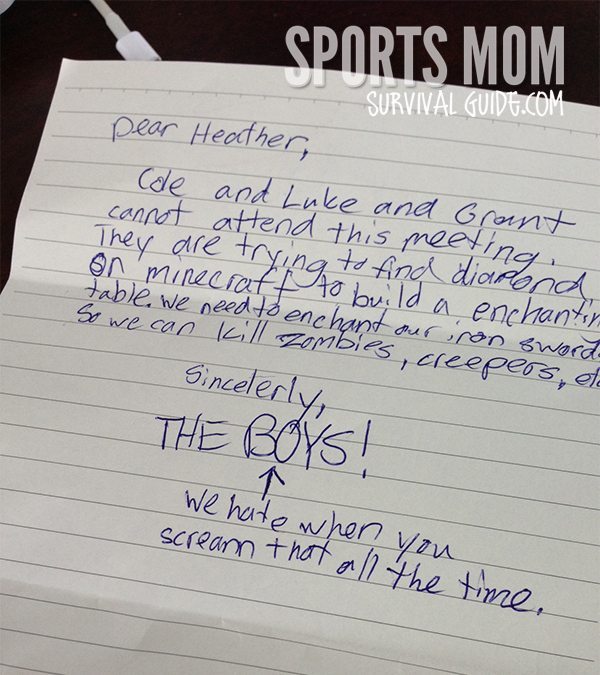 SPORTS MOM
SURVIVAL GUIDE.COM
Dear Heather,
Cole and Luke and Grant
cannot attend this meeting.
They are trying to find diamond
on minecraft to build a enchantin
table. we need to enchant our iron sword
So we can kill zombies, creepers, etc
Sincelerly,
THE BOYS!
we hate when you
scream that all the time.